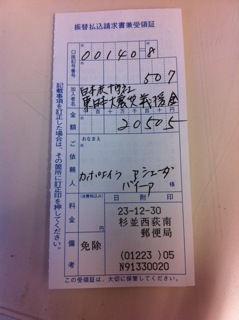 振替払込請求書兼受領証
口座記号番号
00140-8
507
加入者名
日本赤十字社
東日本大震災義援金
金額
千 百 十 万 千 百 十 円
20505
ご依頼人
おなまえ
カポエィラ
様
(消費税込み)
料金
免除
備考
日附印
23-12-30
杉並西荻南
郵便局
(01223)05
N91330020
記載事項を訂正した場合は、その箇所に訂正印を押してください。
この受領証は、大切に保管してください。